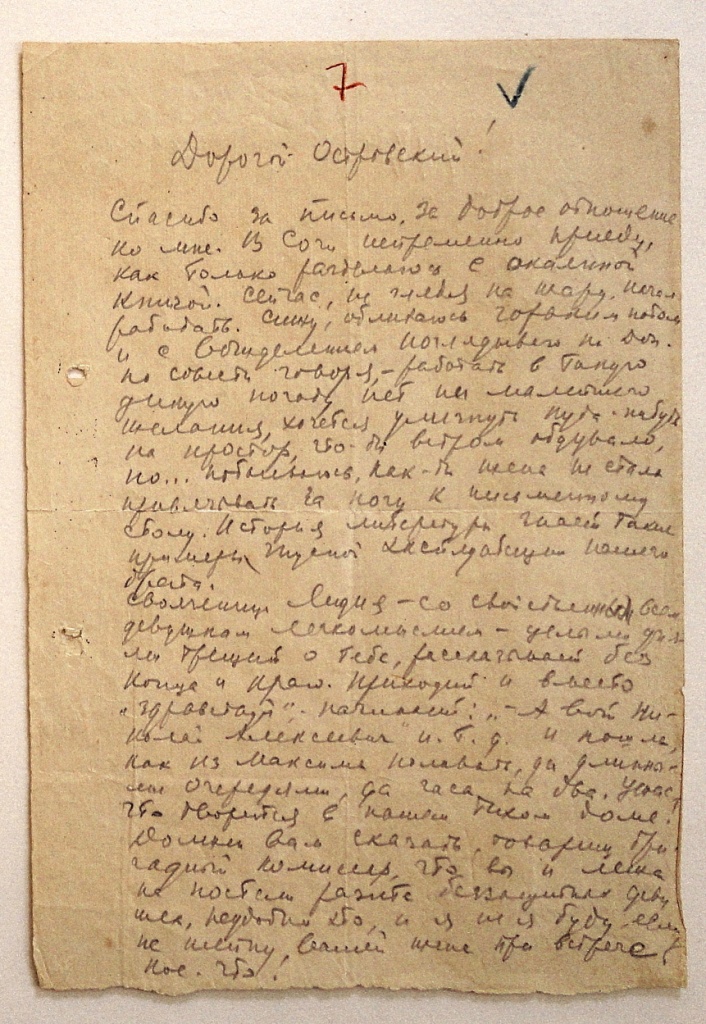 7
Дорогой Островский!
Спасибо за письмо, за доброе отношение
ко мне. В Сочи непременно приеду,
как только разделаюсь с окаянной
книгой. Сейчас, не глядя на жару, начал
работать. Сижу, обливаюсь горьким потом
и с вожделением поглядываю на Дон.
По совести говоря, – работать в такую
дикую погоду нет ни малейшего
желания, хочется улизнуть куда-нибудь
на простор, что-бы ветром обдувало,
но... побаиваюсь, как-бы жена не стала
привязывать за ногу к письменному
столу. История литературы знает такие
примеры гнусной эксплоатации нашего
брата.
Свояченица Лидия – со свойственным всем
девушкам легкомыслием – целыми дня-
ми трещит о тебе, рассказывает без
конца и края. Приходит и вместо
„здравствуй“ начинает: „– А вот Ни-
колай Алексеевич“ и.т.д. и пошла,
как из Максима поливать, да длинны-
ми очередями, да часа на два. Ужас,
что творится в нашем тихом доме!
Должен вам сказать, товарищ бри-
гадный комиссар, что вы и лежа
на постели разите беззащитных деву
шек, неудобно это, и я не я буду если
не шепну вашей жене при встрече
кое-что!